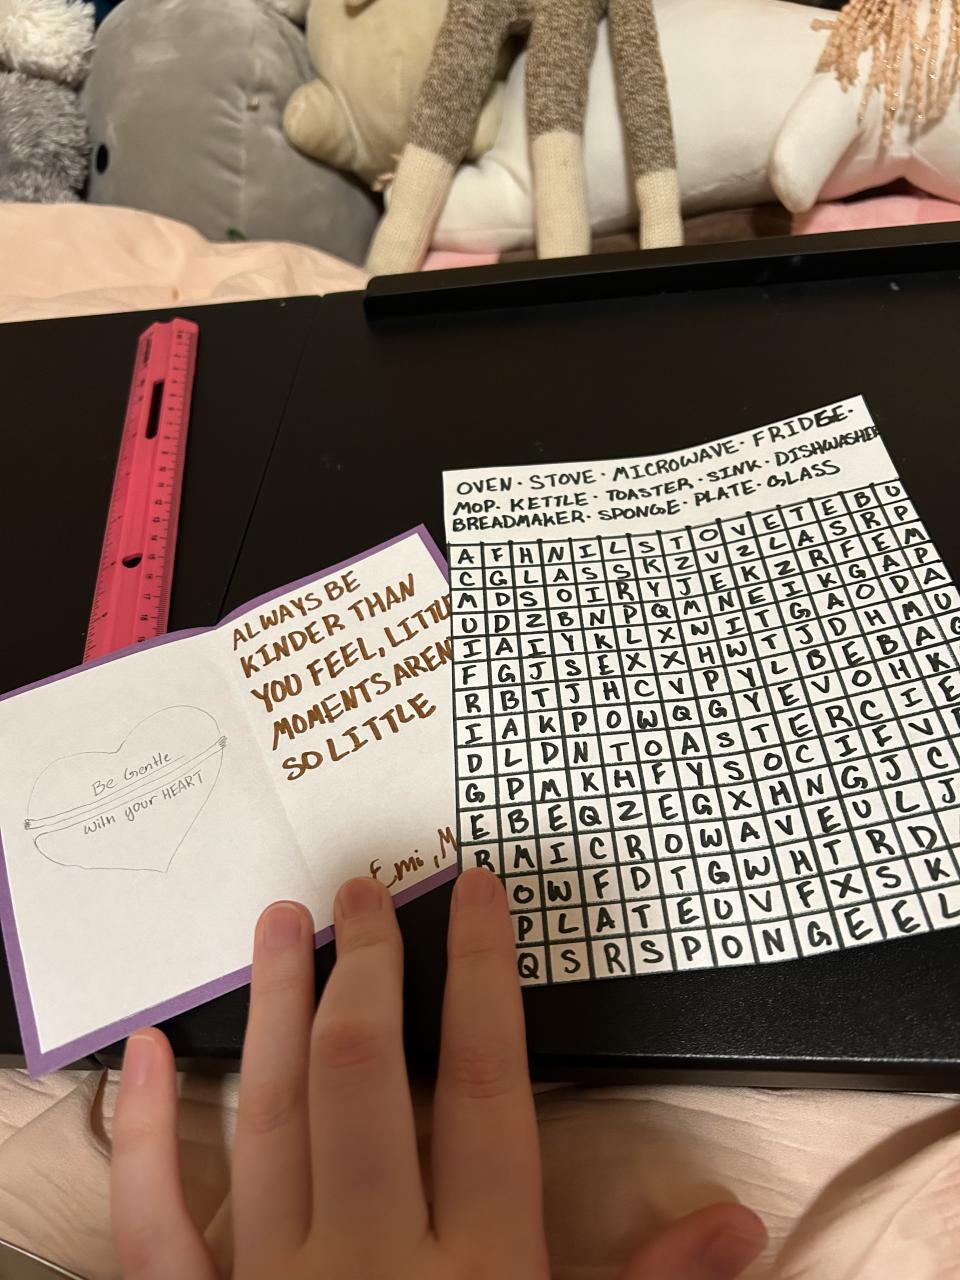 OVEN · STOVE · MICROWAVE · FRIDGE ·
MOP · KETTLE · TOASTER · SINK · DISHWASHER
BREADMAKER · SPONGE · PLATE · GLASS
A F H N I L S T O V E T E B U
C G L A S S K Z V Z L A S R P
M D S O I R Y J E K Z R F E M
U D Z B N P Q M N E I K G A P
I A I Y K L X N I T G A O D A
F G J S E X X H W T J D H M U
R B T J H C V P Y L B E B A G
I A K P O W Q G Y E V O H K
D L D N T O A S T E R C I E
G P M K H F Y S O C I F V
E B E Q Z E G X H N G J C
R M I C R O W A V E U L J
O W F D T G W H T R D
P L A T E U V F X S K
Q S R S P O N G E E L
ALWAYS BE
KINDER THAN
YOU FEEL, LITTLE
MOMENTS AREN
SO LITTLE
Emi, M
Be Gentle
with your HEART